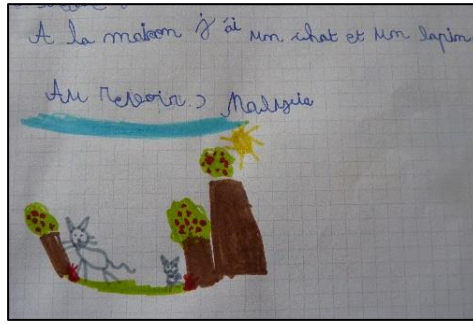 A la maison j'ai un chat et un lapin
Au revoir